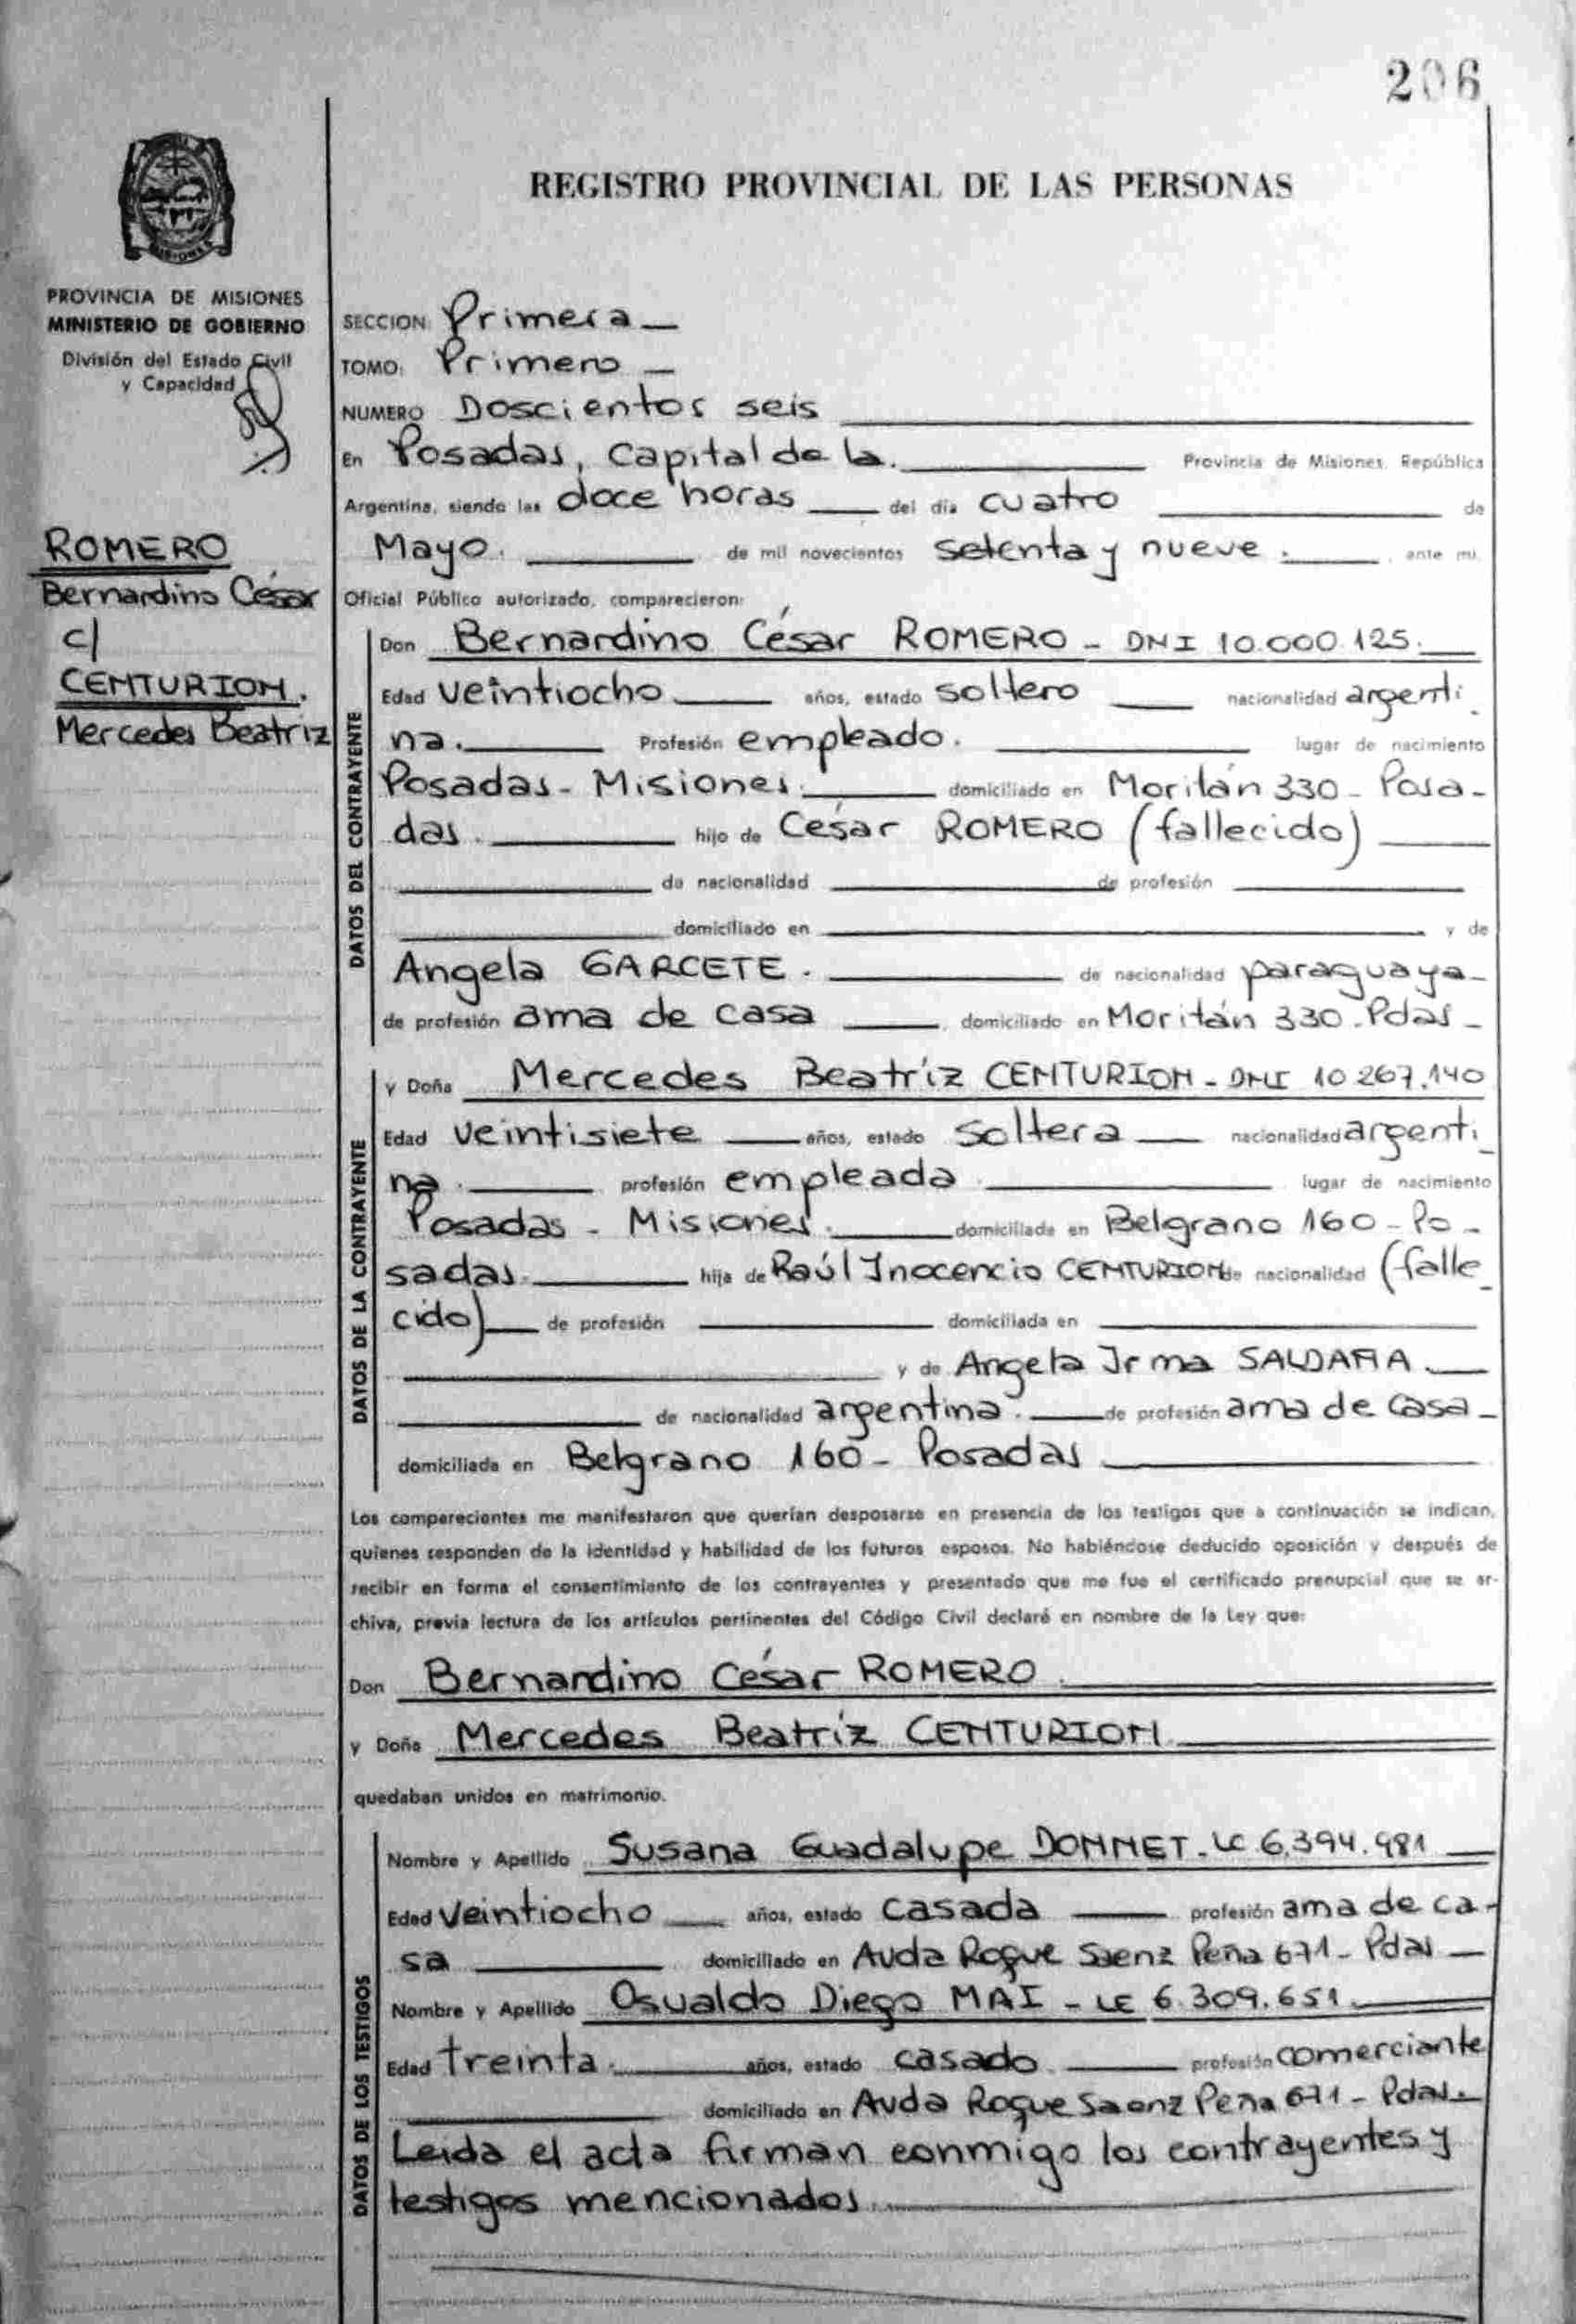 206
REGISTRO PROVINCIAL DE LAS PERSONAS
MISIONES
PROVINCIA DE MISIONES
MINISTERIO DE GOBIERNO
División del Estado Civil
y Capacidad
ROMERO
Bernardino César
c/
CENTURION.
Mercedes Beatriz
SECCION: Primera —
TOMO: Primero —
NUMERO Doscientos seis
En Posadas, Capital de la. Provincia de Misiones, República
Argentina, siendo las doce horas del día cuatro de
Mayo. de mil novecientos setenta y nueve. ante mí,
Oficial Público autorizado, comparecieron:
DATOS DEL CONTRAYENTE
Don Bernardino César ROMERO - DNI 10.000.125.
Edad veintiocho años, estado soltero nacionalidad argenti
na. Profesión empleado. lugar de nacimiento
Posadas - Misiones. domiciliado en Moritán 330 - Posa-
das. hijo de César ROMERO (fallecido)
de nacionalidad de profesión
domiciliado en y de
Angela GARCETE. de nacionalidad paraguaya-
de profesión ama de casa domiciliado en Moritán 330 - Pdas -
DATOS DE LA CONTRAYENTE
y Doña Mercedes Beatríz CENTURION - DNI 10.267.140
Edad veintisiete años, estado soltera nacionalidad argenti
na. profesión empleada lugar de nacimiento
Posadas - Misiones. domiciliada en Belgrano 160 - Po -
sadas. hija de Raúl Inocencio CENTURION de nacionalidad (falle
cido) de profesión domiciliada en
y de Angela Irma SALDAÑA
de nacionalidad argentina. de profesión ama de casa -
domiciliada en Belgrano 160 - Posadas
Los comparecientes me manifestaron que querían desposarse en presencia de los testigos que a continuación se indican,
quienes responden de la identidad y habilidad de los futuros esposos. No habiéndose deducido oposición y después de
recibir en forma el consentimiento de los contrayentes y presentado que me fue el certificado prenupcial que se ar-
chiva, previa lectura de los artículos pertinentes del Código Civil declaré en nombre de la Ley que:
Don Bernardino César ROMERO
y Doña Mercedes Beatríz CENTURION
quedaban unidos en matrimonio.
DATOS DE LOS TESTIGOS
Nombre y Apellido Susana Guadalupe DONNET - LC 6.394.981
Edad veintiocho años, estado casada profesión ama de ca-
sa domiciliado en Avda Roque Saenz Peña 671 - Pdas
Nombre y Apellido Osvaldo Diego MAI - LE 6.309.651
Edad treinta. años, estado casado profesión comerciante
domiciliado en Avda Roque Saenz Peña 671 - Pdas.
Leida el acta firman conmigo los contrayentes y
testigos mencionados.